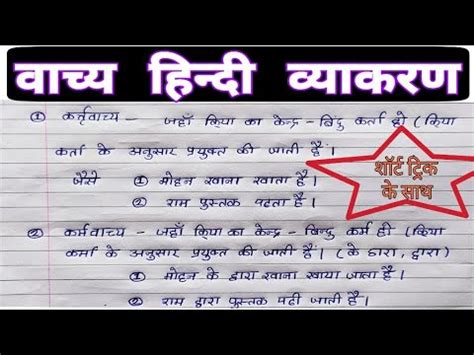 वाच्य हिन्दी व्याकरण
① कर्तृवाच्य - जहाँ क्रिया का केन्द्र-बिंदु कर्ता हो (क्रिया
कर्ता के अनुसार प्रयुक्त की जाती है।
जैसे ① मोहन खाना खाता है।
② राम पुस्तक पढ़ता है।
शॉर्ट ट्रिक
के साथ
② कर्मवाच्य - जहाँ क्रिया का केन्द्र-बिन्दु कर्म हो (क्रिया
कर्म के अनुसार प्रयुक्त की जाती है। (के द्वारा, द्वारा)
① मोहन के द्वारा खाना खाया जाता है।
② राम द्वारा पुस्तक पढ़ी जाती है।